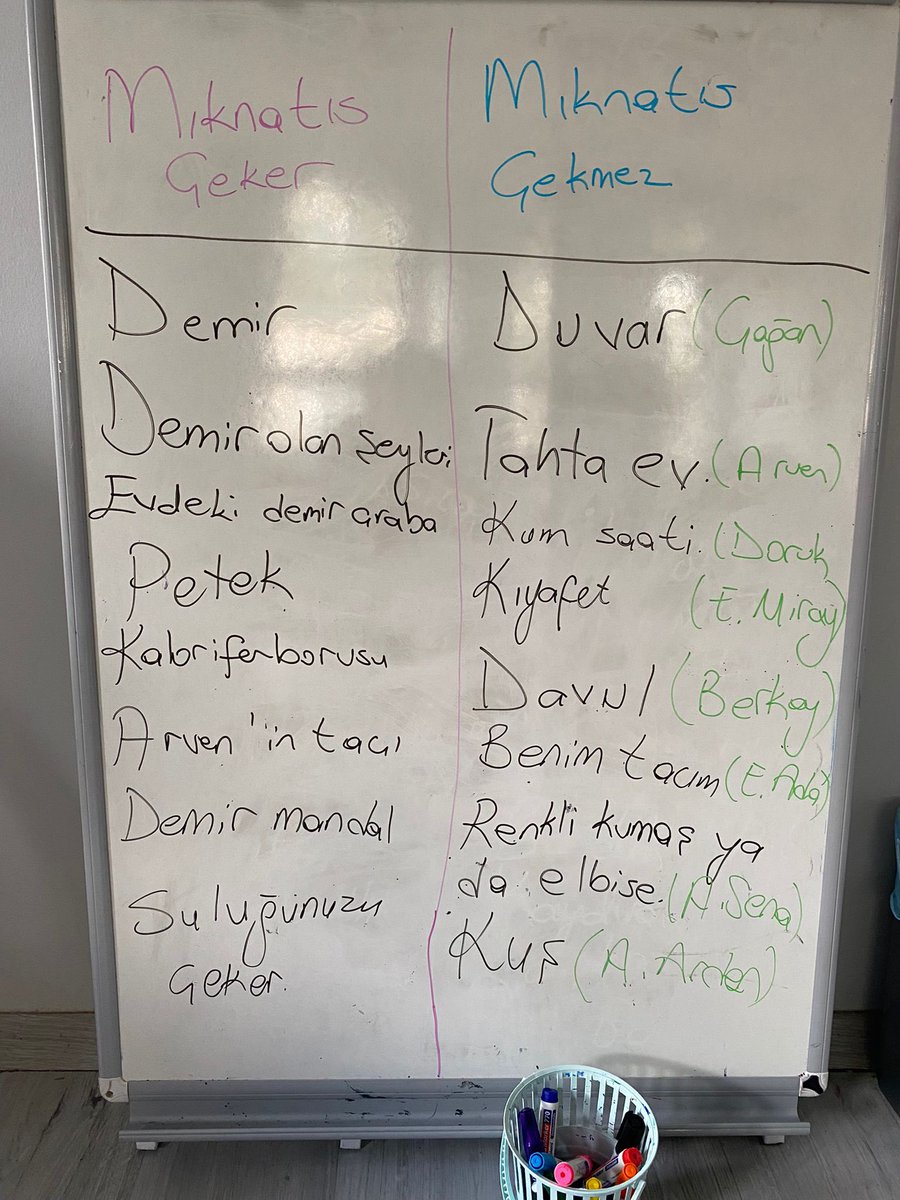 Mıknatıs
Çeker
Demir
Demir olan şeyleri
Evdeki demir araba
Petek
Kaloriferborusu
Arven'in tacı
Demir mandal
Suluğunuzu
Çeker.
Mıknatıs
Çekmez
Duvar (Çağan)
Tahta ev. (Arven)
Kum saati. (Doruk)
Kıyafet (E. Miray)
Davul (Berkay)
Benim tacım (E. Ada)
Renkli kumaş ya
da elbise. (A. Sena)
Kuş (A. Arden)